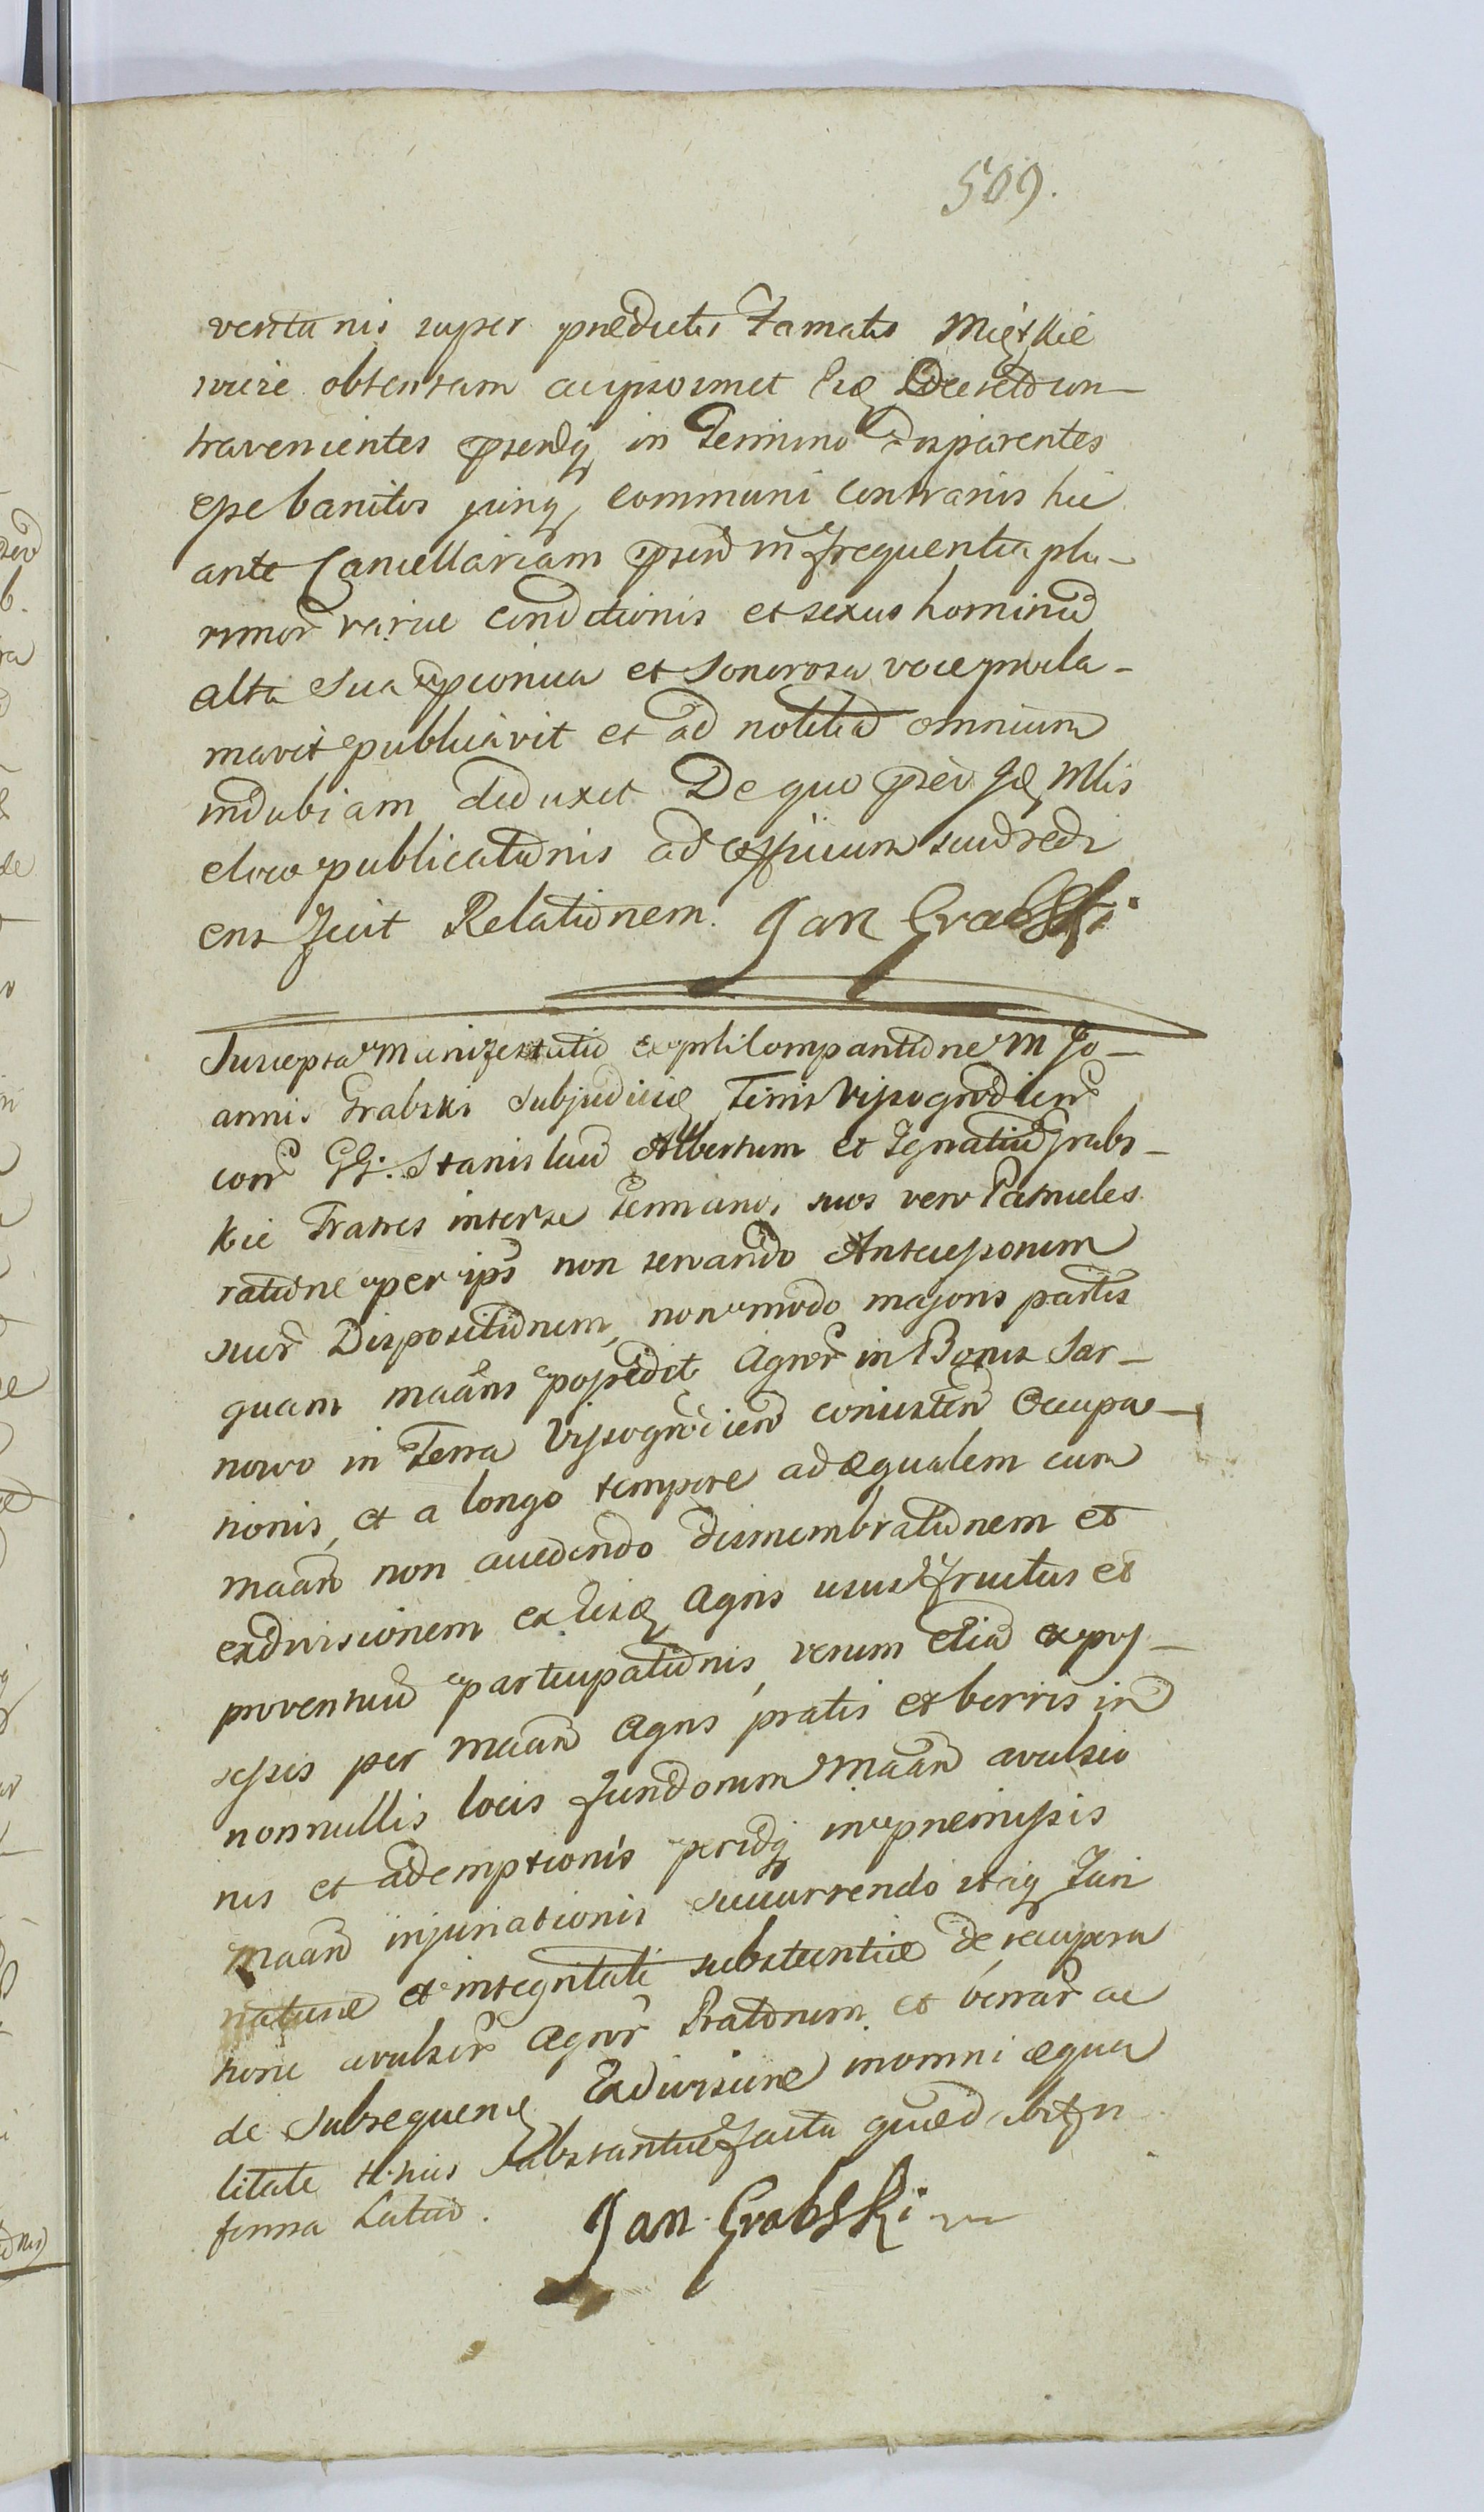 509.
ventionis super praedictis Famatis Mięskie
wicze obtentam ac ipsosmet huiq Decreto con-
travenientes psensq in Termino dnparentes
esse banitos juriq communi contrarios hic
ante Cancellariam psend in frequentia plu-
rimor variae conditionis et sexus hominum
alta sua psconica et sonorosa voce procla-
mavit publicavit et ad notitia omnium
indubiam deduxit De quo psev Gle Mlis
eloco publicationis ad officium suud redi
ens fecit Relationem. Jan Grabski
Suscepta Manifestatio ex psli Comparitione M Jo-
annis Grabski Subjudicis Terris Vissogrodiens
contr GG: Stanislaum Albertum et Ignatium Grabs-
kie Fratres inter se Germanos suos vero Patrueles
ratione per ips non servando Antecessorum
suor Dispositionem, non modo majoris partis
quam maans possedit Agror in Bonis Sar-
nowo in Terra Vissogrodien consisten Occupa-
tionis, et a longo tempore ad aequalem cum
maan non accedendo dismembrationem et
exdivisionem ex iisq Agris usus fructus et
proventuu participationis, verum etia ex pos-
sessis per maan Agris pratis et borris in
nonnullis locis fundorum maan avulsio
nis et ademptionis peridq in praemissis
maan injuriationis succurrendo itaq Juri
naturae et integritati substantiae de recupera
tione avulsor Agror Pratorum et borrar ac
de subsequen Exdivisione in omni aequa
litate Hujus Substantiae facta quaed ibtfn
forma Latius. Jan Grabski mp